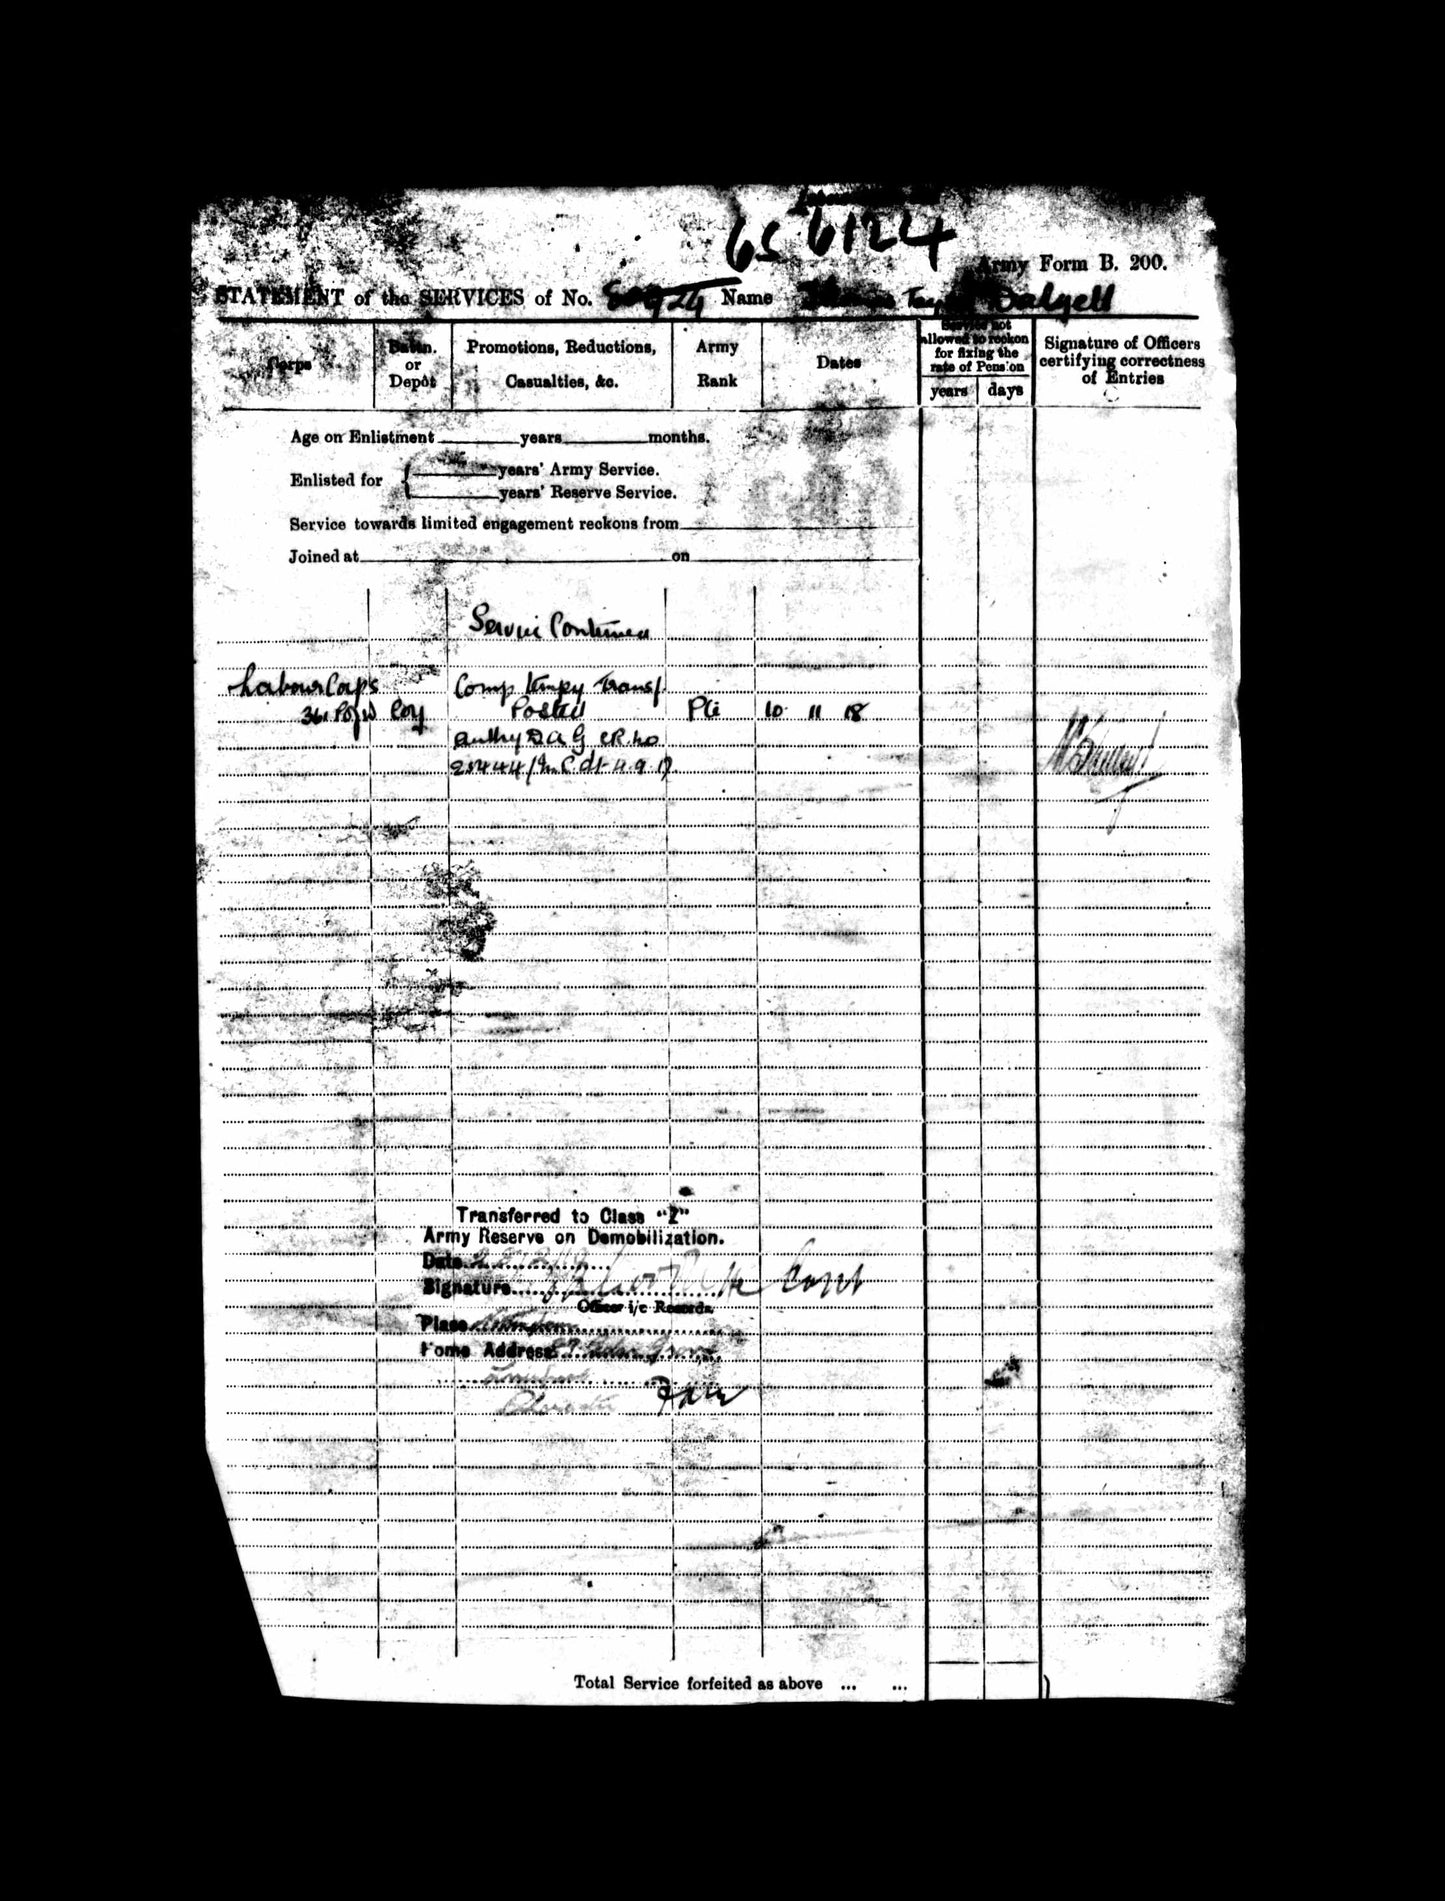 656124
Army Form B. 200.
STATEMENT of the SERVICES of No. Name Thomas Dalzell
Corps
Battn. or Depôt
Promotions, Reductions, Casualties, &c.
Army Rank
Dates
Service not allowed to reckon for fixing the rate of Pension
years days
Signature of Officers certifying correctness of Entries
Age on Enlistment years months.
Enlisted for years' Army Service.
years' Reserve Service.
Service towards limited engagement reckons from
Joined at on
Service Continued
Labour Corps Comp Tempy Transf.
361 P of W Coy Posted Pte 10 11 18
Authy D A G CR No
25444/ dt 11.9.17
Transferred to Class "Z"
Army Reserve on Demobilization.
Date
Signature Capt
Officer i/c Records.
Place
Home Address
Total Service forfeited as above ... ...